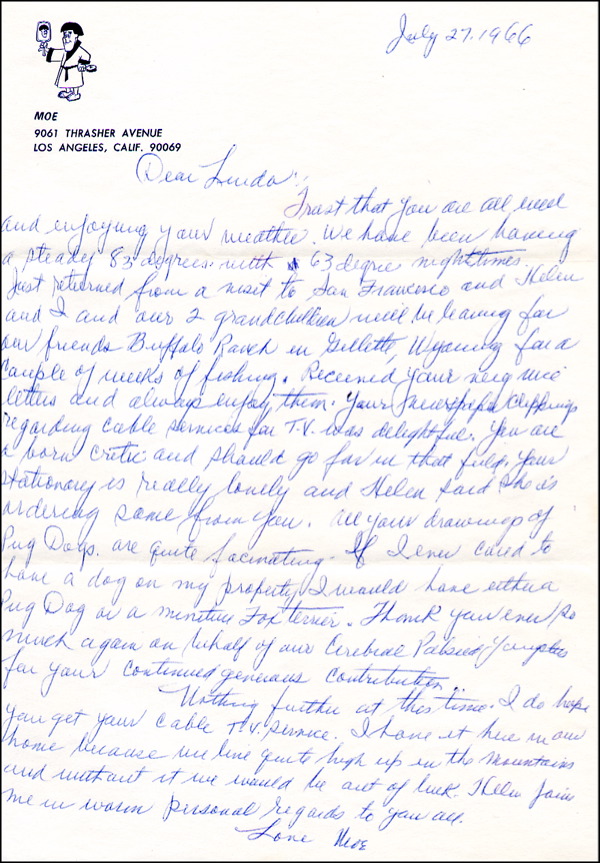 July 27, 1966
MOE
9061 THRASHER AVENUE
LOS ANGELES, CALIF. 90069
Dear Linda:,
Trust that you are all well
and enjoying your weather. We have been having
a steady 83 degrees with 63 degree nighttimes.
Just returned from a visit to San Francisco and Helen
and I and our 2 grandchildren will be leaving for
our friends Buffalo Ranch in Gillette, Wyoming for a
couple of weeks of fishing. Received your very nice
letters and always enjoy them. Your newspaper clippings
regarding cable services for T.V. was delightful. You are
a born critic and should go far in that field. Your
stationary is really lovely and Helen said she is
ordering some from you. All your drawings of
Pug Dogs. are quite facinating. If I ever cared to
have a dog on my property I would have either a
Pug Dog or a miniture Fox terrier. Thank you ever so
much again on behalf of our Cerebral Palsied Youngsters
for your continued generous contribution..
Nothing further at this time. I do hope
you get your cable T.V. service. I have it here in our
home because we live quite high up in the mountains
and without it we would be out of luck. Helen joins
me in warm personal regards to you all.
Love Moe